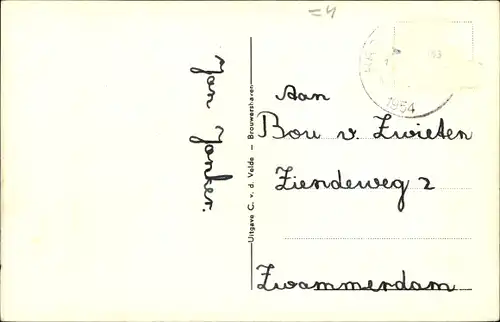 =4
Jan Jonker.
Uitgave C. v. d. Velde – Brouwershaven
1954
Aan
Bou v. Zwieten
Ziendeweg 2
Zwammerdam